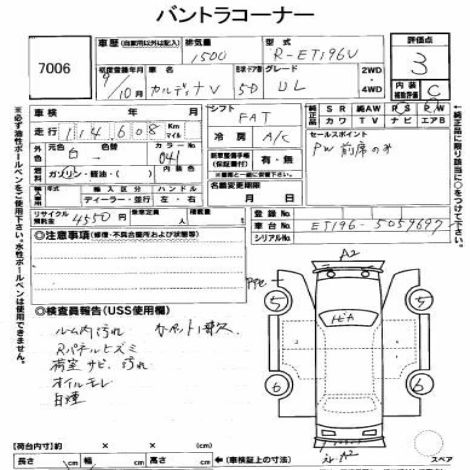 バントラコーナー
7006
車歴 (自家用以外は記入) 排気量 1500 型式 R-ET196V
初度登録年月 9/10月 車名 カルディナV 形状・ドア数 5D グレード UL 2WD 4WD
評価点 3
内装 補助評価 C
車検 年 月
走行 114,608 Km マイル
外装色 元色 白 カラーNo. 041
燃料 ガソリン・軽油・( ) 内装色
輸入車用 輸入区分 ディーラー・並行 ハンドル 左・右
リサイクル預託金 4550円 乗車定員 名 積載量 kg
シフト FAT
冷房 A/C
新車整備手帳(保証書付) 有・無
名義変更期限 月 日
純正品 SR カワ 純AW TV PS ナビ PW エアB
セールスポイント
PW 前席のみ
登録No.
車台No. ET196-5059697
シリアルNo.
◎注意事項 (修復・不具合箇所および状態等)
◎検査員報告 (USS使用欄)
ルーム内汚れ
Rパネルヒズミ
荷室サビ、汚れ
オイルモレ
白煙
A2
5 5
6 6
A2
スペア
【荷台内寸】約 × × (cm)
長さ cm 幅 cm 高さ cm ←(車検証上の寸法)
※必ず油性ボールペンをご使用下さい。水性ボールペンは使用できません。
←純正品に限り該当に○をつけて下さい。